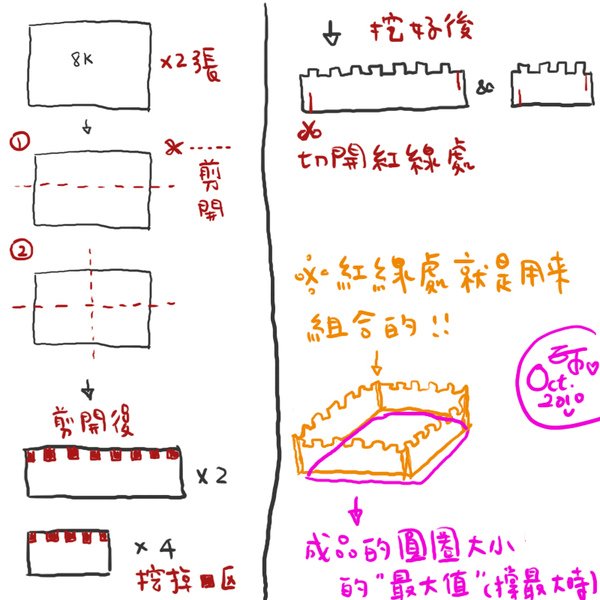 8K
×2張
①
剪
開
②
剪開後
×2
×4
挖掉■区
挖好後
&
切開紅線處
※紅線處就是用來
組合的!!
Oct.
2010
成品的圓圈大小
的"最大值"(撐最大時)